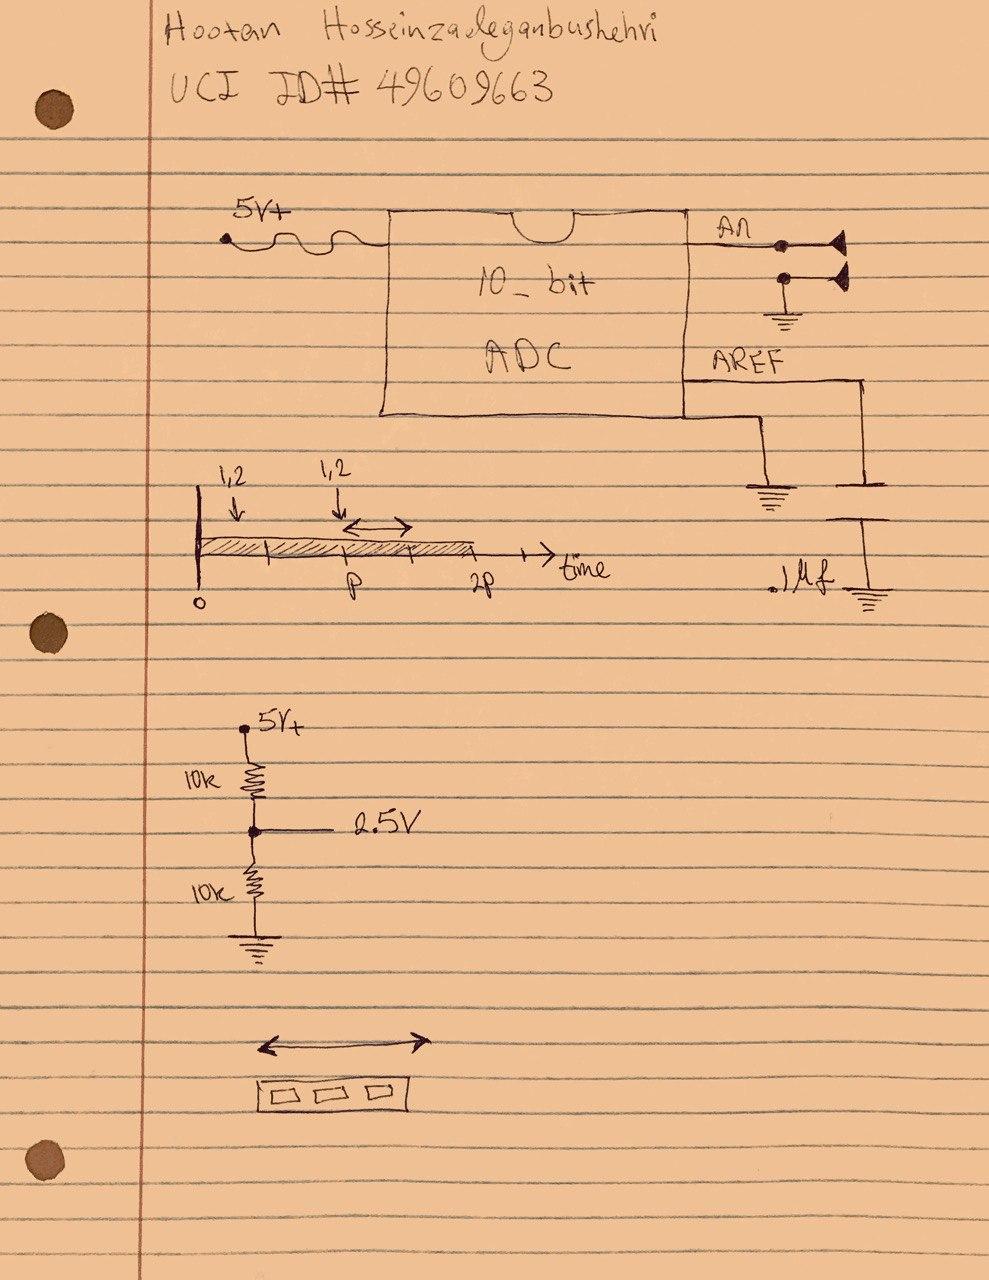 Hootan Hosseinzadeganbushehri
UCI ID# 49609663
5V+
An
10_bit
ADC
AREF
1,2 1,2
P 2P time
0
.1Mf
5V+
10k
2.5V
10k